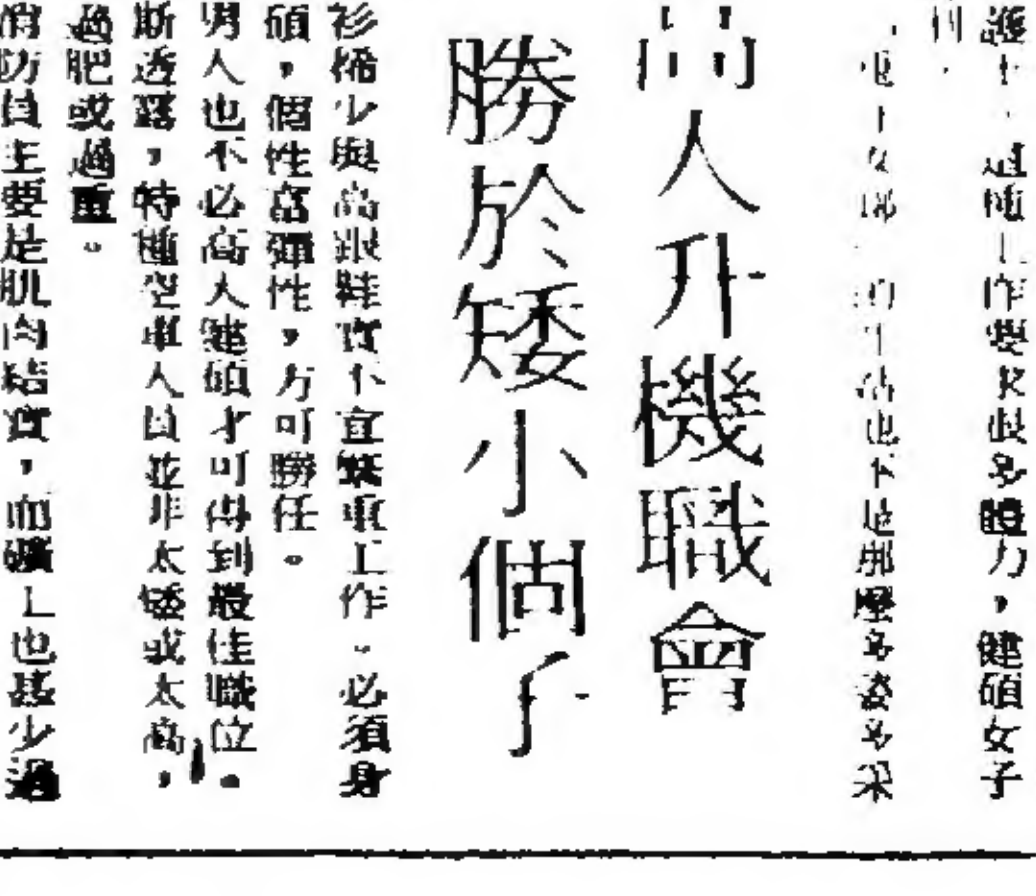 護士,這種工作要求很多體力,健碩女子
的生活也不是那麼多姿多采
高人升機職會
勝於矮小個子
衫稀少與高跟鞋實不宜繁重工作。必須身
碩,個性富彈性,方可勝任。
男人也不必高大健碩才可得到最佳職位。
斯透露,特種空軍人員並非太矮或太高,
過肥或過重。
消防員主要是肌肉結實,而礦工也甚少過